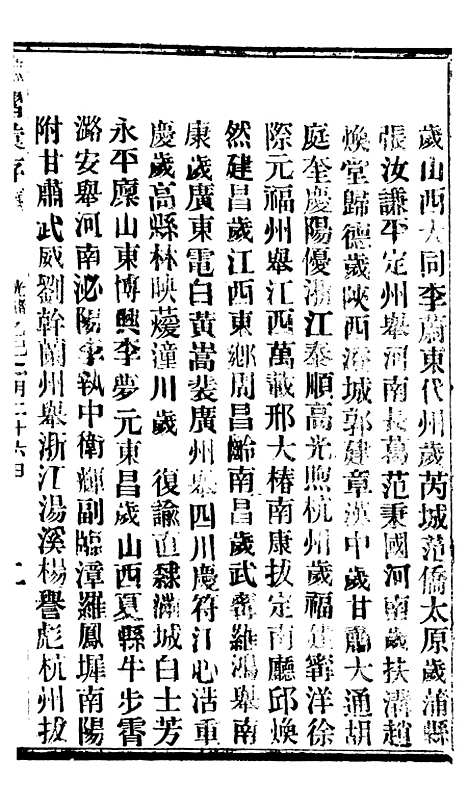 歲山西大同李蔚東代州歲芮城范僑太原歲蒲縣
張汝謙平定州舉河南長葛范秉國河南歲扶溝趙
煥堂歸德歲陝西潼城郭建章漢中歲甘肅大通胡
庭奎慶陽優浙江泰順高光煦杭州歲福建寧洋徐
際元福州舉江西萬載邢大椿南康拔定南廳邱煥
然建昌歲江西東鄉周昌齡南昌歲武寧維鴻舉南
康歲廣東電白黃嵩裴廣州舉四川慶符江心浩重
慶歲高縣林映薆潼川歲　復諭直隸灤城白士芳
永平廩山東博興李夢元東昌歲山西夏縣牛步霄
潞安舉河南泌陽李執中衛輝副臨漳羅鳳墀南陽
附甘肅武威劉幹蘭州舉浙江湯溪楊譽彪杭州拔
光緒乙巳二月二十六日